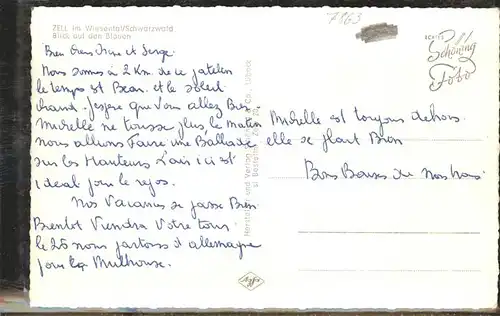 ZELL im Wiesental/Schwarzwald
Blick auf den Blauen
7863
ECHTES
Schöning
Foto
Bien Chers Irène et Serge.
Nous somes à 2 Km. de ce patelin
le temps est Beau. et le soleil
chaud. J'espère que vous allez Bien
Mireille ne tousse plus, le matin
nous allons Faire une Ballade
sur les Hauteurs l'air ici est
ideal pour le repos.
Nos Vacances se passe Bien
Bientot Viendra Votre tour
le 26 nous partons d'allemagne
pour Mulhouse.
Mireille est toujours dehors
elle se plait Bien
Bons Baisers de nous trois
Hersteller und Verlag Schöning & Co., Lübeck
Agfa